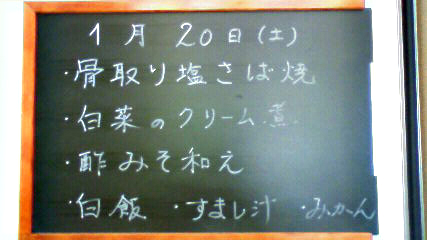 1月20日(土)
・骨取り塩さば焼
・白菜のクリーム煮
・酢みそ和え
・白飯 ・すまし汁 ・みかん